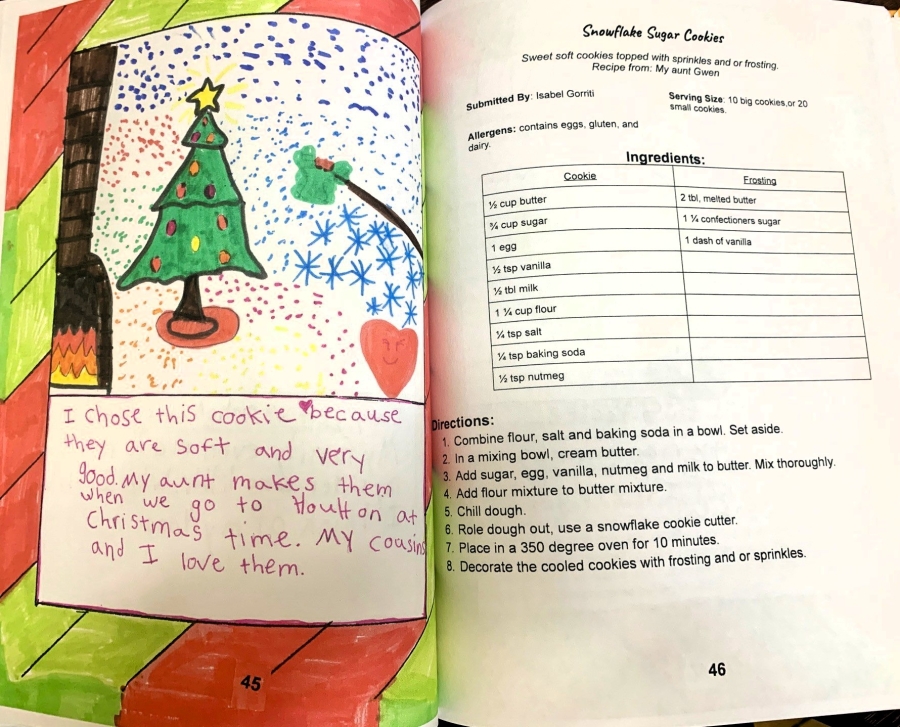 I chose this cookie because
they are soft and very
good. My aunt makes them
when we go to Houlton at
Christmas time. My cousins
and I love them.
45
Snowflake Sugar Cookies
Sweet soft cookies topped with sprinkles and or frosting.
Recipe from: My aunt Gwen
Submitted By: Isabel Gorriti
Serving Size: 10 big cookies,or 20
small cookies.
Allergens: contains eggs, gluten, and
dairy.
Ingredients:
Cookie
Frosting
½ cup butter
2 tbl, melted butter
¾ cup sugar
1 ¼ confectioners sugar
1 egg
1 dash of vanilla
½ tsp vanilla
½ tbl milk
1 ¼ cup flour
¼ tsp salt
¼ tsp baking soda
½ tsp nutmeg
Directions:
1. Combine flour, salt and baking soda in a bowl. Set aside.
2. In a mixing bowl, cream butter.
3. Add sugar, egg, vanilla, nutmeg and milk to butter. Mix thoroughly.
4. Add flour mixture to butter mixture.
5. Chill dough.
6. Role dough out, use a snowflake cookie cutter.
7. Place in a 350 degree oven for 10 minutes.
8. Decorate the cooled cookies with frosting and or sprinkles.
46